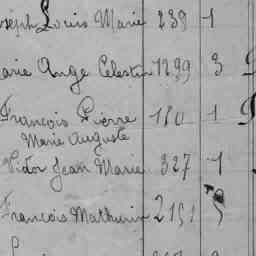 oseph Louis Marie 239 1
arie Ange Celestin 1299 3
François Pierre 180 1
Marie Auguste
Victor Jean Marie 327 1
Francois Mathurin 2151